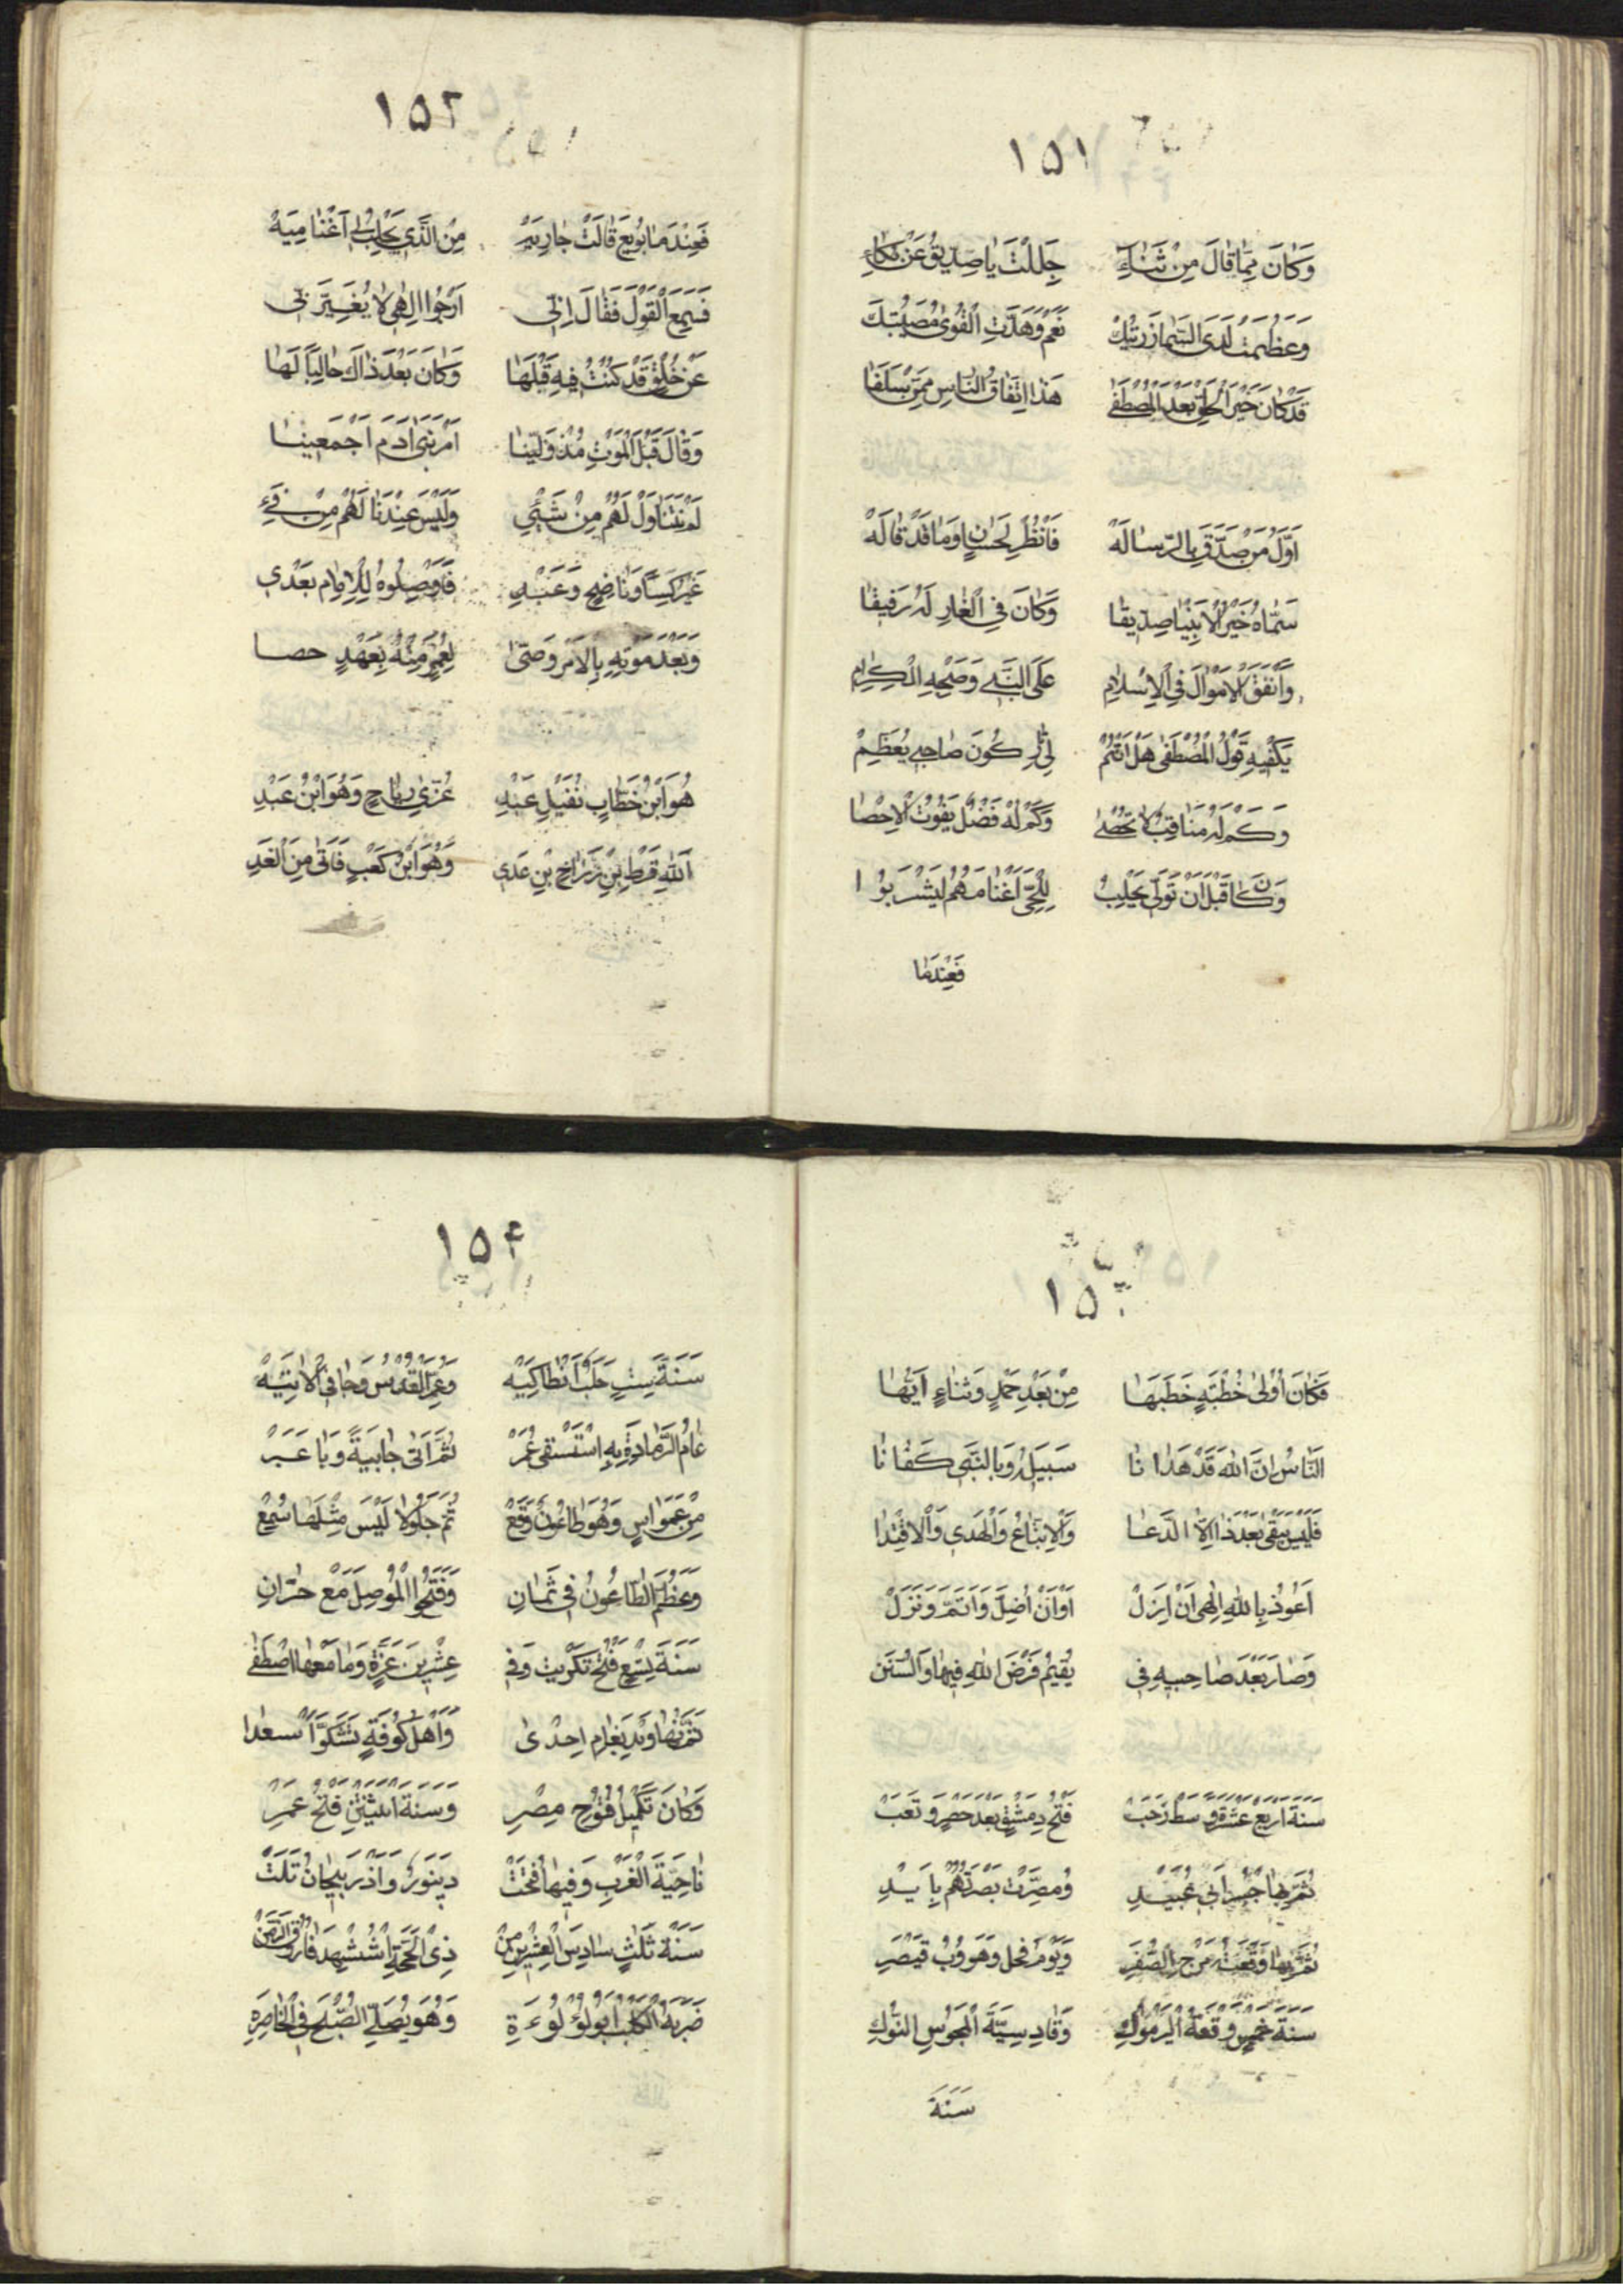 ١٥١
وَكَانَ مِمَّا قَالَ مِنْ ثَنَاءِ جَلَلْتَ يَا صِدِّيقُ عَنْ بُكَاءِ
وَعَظُمَتْ لَدَى السَّمَا زَرِيَّتُكْ نَعَمْ وَهَدَّتِ الْقُوٰى مُصِيبَتُكَ
قَدْ كَانَ خَيْرَ الْخَلْقِ بَعْدَ الْمُصْطَفٰى هَذَا اتِّفَاقُ النَّاسِ مِمَّنْ سَلَفَا
اَوَّلُ مَنْ صَدَّقَ بِالرِّسَالَةْ فَانْظُرْ لِحَسَّانٍ وَمَا قَدْ قَالَهْ
سَمَّاهُ خَيْرُ الْاَنْبِيَا صِدِّيقَا وَكَانَ فِي الْغَارِ لَهُ رَفِيقَا
وَاَنْفَقَ الْاَمْوَالَ فِي الْاِسْلَامِ عَلَى النَّبِي وَصَحْبِهِ الْكِرَامِ
يَكْفِيهِ قَوْلُ الْمُصْطَفٰى هَلْ اَنْتُمْ لِي تَارِكُونَ صَاحِبِي يُعَظَّمْ
وَكَمْ لَهُ مَنَاقِبٌ لَا تُحْصٰى وَكَمْ لَهْ فَضْلٌ يَفُوتُ الْاِحْصَا
وَكَانَ قَبْلَ اَنْ تَوَلَّى يَحْلِبُ لِلْحَيِّ اَغْنَامَهُمُ لِيَشْرَبُوْا
فَعِنْدَمَا
١٥٢
فَعِنْدَمَا بُويِعَ قَالَتْ جَارِيَهْ مِنَ الَّذِي يَحْلِبُ لِي اَغْنَامِيَهْ
فَسَمِعَ الْقَوْلَ فَقَالَ اِنِّي اَرْجُوا اِلٰهِي لَا يُغَيِّرَنِّي
عَنْ خُلُقٍ قَدْ كُنْتُ فِيهِ قَبْلَهَا وَكَانَ بَعْدَ ذَاكَ حَالِبًا لَهَا
وَقَالَ قَبْلَ الْمَوْتِ مُذْ وَلِينَا اَمْرَ بَنِي اٰدَمَ اَجْمَعِينَا
لَمْ نَتَنَاوَلْ لَهُمْ مِنْ شَيْئِي وَلَيْسَ عِنْدَنَا لَهُمْ مِنْ فَيْءِ
غَيْرَ كِسًا وَنَاضِحٍ وَعَبْدِ فَاَوْصِلُوهُ لِلْاِمَامِ بَعْدِي
وَبَعْدَ مَوْتِهِ بِالْاَمْرِ وَصَّى لِعُمَرٍ مِنْهُ بِعَهْدٍ حصا
هُوَ ابْنُ خَطَّابٍ نُفَيْلٍ عَبْدِ عُزّٰى رِيَاحٍ وَهُوَ ابْنُ عَبْدِ
اَللّٰهِ قَرْطِ بْنِ زَرَاحِ بْنِ عَدِي وَهُوَ ابْنُ كَعْبٍ فَاَتٰى مِنَ الْغَدِ
١٥٣
فَكَانَ اُوْلٰى خُطْبَةٍ خَطَبَهَا مِنْ بَعْدِ حَمْدٍ وَثَنَاءٍ اَيُّهَا
النَّاسُ اِنَّ اللّٰهَ قَدْ هَدَانَا سَبِيلَهُ وَبِالنَّبِي كَفَانَا
فَلَيْسَ يَبْقٰى بَعْدَ ذَا اِلَّا الدُّعَا وَالْاِتِّبَاعُ وَالْهَدْيِ وَالْاِقْتِدَا
اَعُوذُ بِاللّٰهِ اِلٰهِي اَنْ اَزِلْ اَوْ اَنْ اَضِلَّ وَاَتَمَّ وَنَزَلْ
وَصَارَ بَعْدَ صَاحِبَيْهِ فِي يُقِيمُ فَرْضَ اللّٰهِ فِيهَا وَالسُّنَنْ
سَنَةَ اَرْبَعَ عَشْرَةٍ وَسَطَ رَجَبْ فَتْحُ دِمَشْقٍ بَعْدَ حَصْرٍ وَتَعَبْ
ثُمَّ بِهَا جِسْرُ اَبِي عُبَيْدِ وَمُصِّرَتْ بَصْرَتُهُمْ بِاَيْدِ
ثُمَّ بِهَا وَقْعَتُ مَرْجِ الصُّفَرِ وَيَوْمُ فِحْلٍ وَهَرُوبُ قَيْصَرِ
سَنَةَ خَمْسٍ وَقْعَةُ الْيَرْمُوكِ وَقَادِسِيَّةَ الْمَجُوسِ النُّوكِ
سَنَةَ
١٥٤
سَنَةَ سِتٍّ حَلَبٌ اَنْطَاكِيَهْ وَعُمَرُ الْقُدْسَ وَجَا فِي الْاٰتِيَهْ
عَامُ الرَّمَادَةِ بِهِ اسْتَسْقٰى عُمَرْ ثُمَّ اَتٰى جَابِيَةً وَبَا عَبَرْ
مِنْ عَمَوَاسٍ وَهْوَ طَاعُونٌ وَقَعْ ثُمَّ جَلُولَا لَيْسَ مِثْلَهَا سُمِعْ
وَعَظُمَ الطَّاعُونُ فِي ثَمَانِ وَفَتَحُوا الْمَوْصِلَ مَعْ حَرَّانِ
سَنَةَ تِسْعٍ فَتْحُ تَكْرِيتَ وَفِي عِشْرِينَ غَزَّةٍ وَمَا مَعْهَا اصْطُفِي
وَاَهْلُ كُوفَةٍ تَشَكَّوْا سَعْدَا
وَكَانَ تَكْمِيلُ فُتُوحِ مِصْرِ وَسَنَةَ اثْنَتَيْنِ فَتْحُ عُمَرِ
نَاحِيَةَ الْغَرْبِ وَفِيهَا فُتِحَتْ دِينَوَرُ وَاَذْرَبِيجَانُ تَلَتْ
سَنَةَ ثَلٰثٍ سَادِسَ الْعِشْرِينَ مِنْ ذِي الْحَجَّةِ اسْتُشْهِدَ فَارُوقُ الزَّمَنْ
ضَرَبَهُ الْكَلْبُ اَبُو لُؤْلُوءَةِ وَهْوَ يُصَلِّي الصُّبْحَ فِي الْخَاصِرَةِ